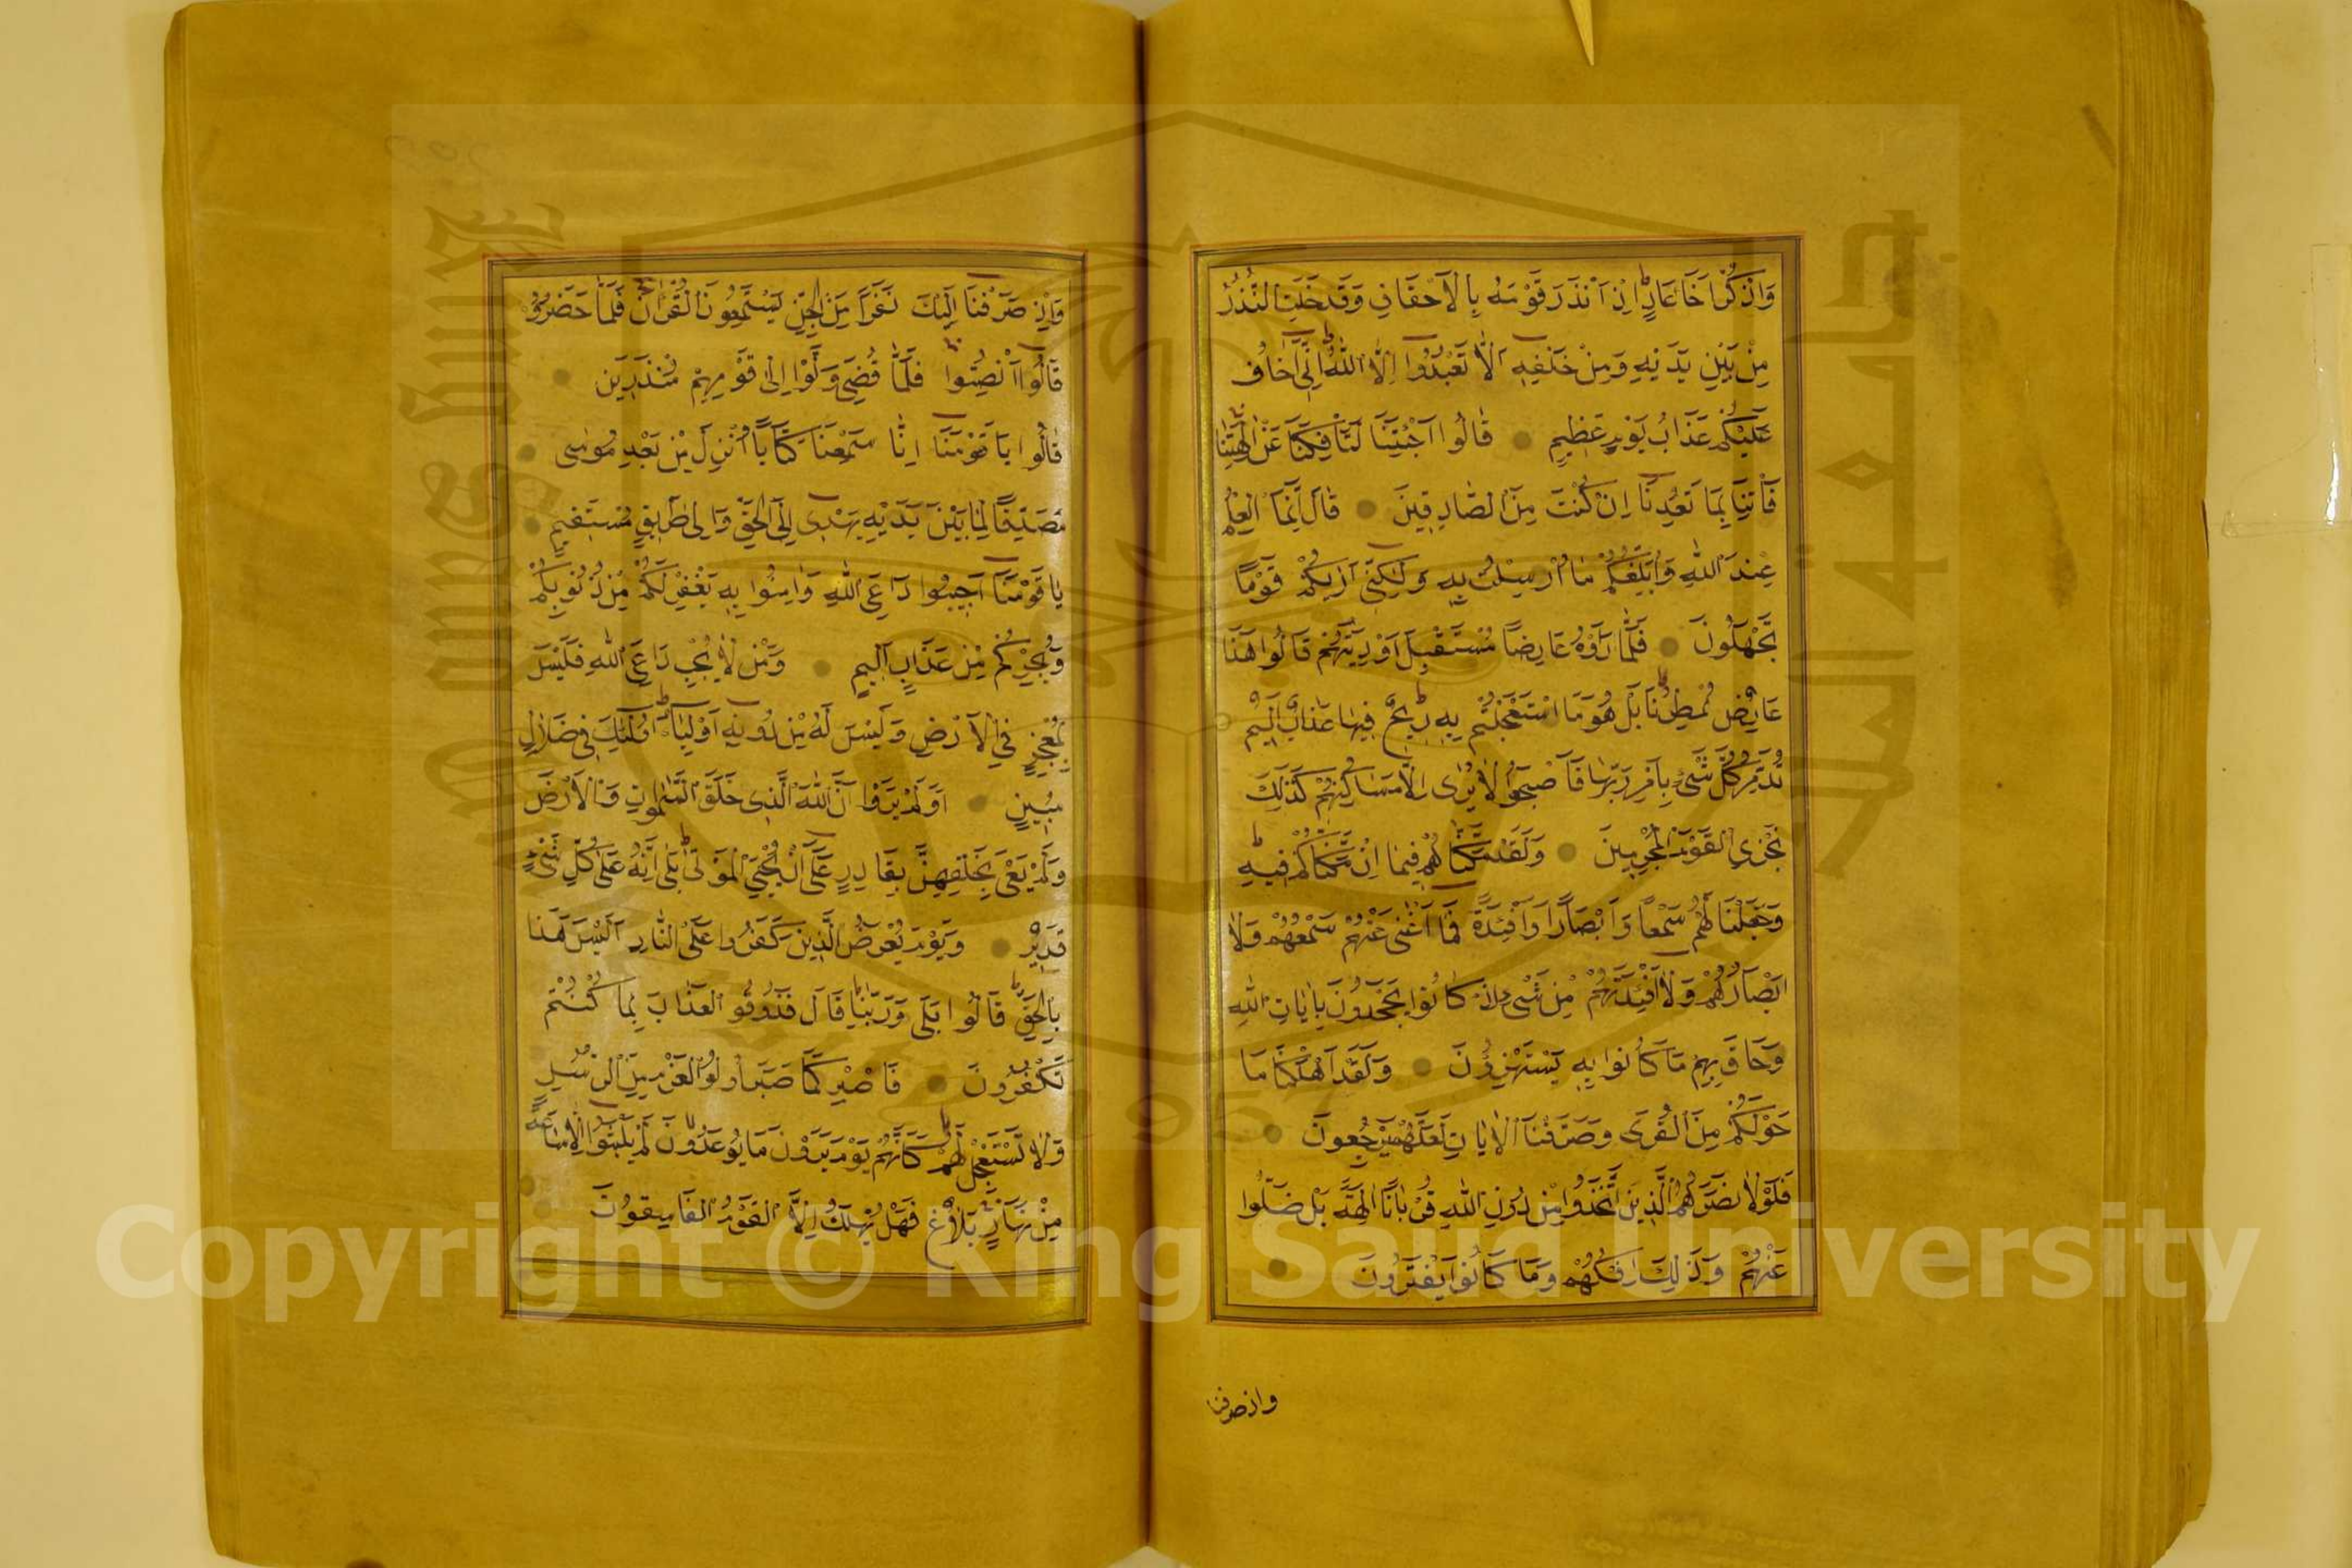 وَاذْكُرْ اَخَا عَادٍ اِذْ اَنْذَرَ قَوْمَهُ بِالْاَحْقَافِ وَقَدْ خَلَتِ النُّذُرُ
مِنْ بَيْنِ يَدَيْهِ وَمِنْ خَلْفِهِ اَلَّا تَعْبُدُوا اِلَّا اللّٰهَ اِنِّي اَخَافُ
عَلَيْكُمْ عَذَابَ يَوْمٍ عَظِيمٍ قَالُوا اَجِئْتَنَا لِتَاْفِكَنَا عَنْ اٰلِهَتِنَا
فَاْتِنَا بِمَا تَعِدُنَا اِنْ كُنْتَ مِنَ الصَّادِقِينَ قَالَ اِنَّمَا الْعِلْمُ
عِنْدَ اللّٰهِ وَاُبَلِّغُكُمْ مَا اُرْسِلْتُ بِهِ وَلٰكِنِّي اَرٰيكُمْ قَوْمًا
تَجْهَلُونَ فَلَمَّا رَاَوْهُ عَارِضًا مُسْتَقْبِلَ اَوْدِيَتِهِمْ قَالُوا هٰذَا
عَارِضٌ مُمْطِرُنَا بَلْ هُوَ مَا اسْتَعْجَلْتُمْ بِهِ رِيحٌ فِيهَا عَذَابٌ اَلِيمٌ
تُدَمِّرُ كُلَّ شَيْءٍ بِاَمْرِ رَبِّهَا فَاَصْبَحُوا لَا يُرٰى اِلَّا مَسَاكِنُهُمْ كَذٰلِكَ
نَجْزِي الْقَوْمَ الْمُجْرِمِينَ وَلَقَدْ مَكَّنَّاهُمْ فِيمَا اِنْ مَكَّنَّاكُمْ فِيهِ
وَجَعَلْنَا لَهُمْ سَمْعًا وَاَبْصَارًا وَاَفْئِدَةً فَمَا اَغْنٰى عَنْهُمْ سَمْعُهُمْ وَلَا
اَبْصَارُهُمْ وَلَا اَفْئِدَتُهُمْ مِنْ شَيْءٍ اِذْ كَانُوا يَجْحَدُونَ بِاٰيَاتِ اللّٰهِ
وَحَاقَ بِهِمْ مَا كَانُوا بِهِ يَسْتَهْزِؤُنَ وَلَقَدْ اَهْلَكْنَا مَا
حَوْلَكُمْ مِنَ الْقُرٰى وَصَرَّفْنَا الْاٰيَاتِ لَعَلَّهُمْ يَرْجِعُونَ
فَلَوْلَا نَصَرَهُمُ الَّذِينَ اتَّخَذُوا مِنْ دُونِ اللّٰهِ قُرْبَانًا اٰلِهَةً بَلْ ضَلُّوا
عَنْهُمْ وَذٰلِكَ اِفْكُهُمْ وَمَا كَانُوا يَفْتَرُونَ
واذ صرفنا
وَاِذْ صَرَفْنَا اِلَيْكَ نَفَرًا مِنَ الْجِنِّ يَسْتَمِعُونَ الْقُرْاٰنَ فَلَمَّا حَضَرُوهُ
قَالُوا اَنْصِتُوا فَلَمَّا قُضِيَ وَلَّوْا اِلٰى قَوْمِهِمْ مُنْذِرِينَ
قَالُوا يَا قَوْمَنَا اِنَّا سَمِعْنَا كِتَابًا اُنْزِلَ مِنْ بَعْدِ مُوسٰى
مُصَدِّقًا لِمَا بَيْنَ يَدَيْهِ يَهْدِي اِلَى الْحَقِّ وَاِلٰى طَرِيقٍ مُسْتَقِيمٍ
يَا قَوْمَنَا اَجِيبُوا دَاعِيَ اللّٰهِ وَاٰمِنُوا بِهِ يَغْفِرْ لَكُمْ مِنْ ذُنُوبِكُمْ
وَيُجِرْكُمْ مِنْ عَذَابٍ اَلِيمٍ وَمَنْ لَا يُجِبْ دَاعِيَ اللّٰهِ فَلَيْسَ
بِمُعْجِزٍ فِي الْاَرْضِ وَلَيْسَ لَهُ مِنْ دُونِهِ اَوْلِيَاءُ اُولٰئِكَ فِي ضَلَالٍ
مُبِينٍ اَوَلَمْ يَرَوْا اَنَّ اللّٰهَ الَّذِي خَلَقَ السَّمٰوَاتِ وَالْاَرْضَ
وَلَمْ يَعْيَ بِخَلْقِهِنَّ بِقَادِرٍ عَلٰى اَنْ يُحْيِيَ الْمَوْتٰى بَلٰى اِنَّهُ عَلٰى كُلِّ شَيْءٍ
قَدِيرٌ وَيَوْمَ يُعْرَضُ الَّذِينَ كَفَرُوا عَلَى النَّارِ اَلَيْسَ هٰذَا
بِالْحَقِّ قَالُوا بَلٰى وَرَبِّنَا قَالَ فَذُوقُوا الْعَذَابَ بِمَا كُنْتُمْ
تَكْفُرُونَ فَاصْبِرْ كَمَا صَبَرَ اُولُوا الْعَزْمِ مِنَ الرُّسُلِ
وَلَا تَسْتَعْجِلْ لَهُمْ كَاَنَّهُمْ يَوْمَ يَرَوْنَ مَا يُوعَدُونَ لَمْ يَلْبَثُوا اِلَّا سَاعَةً
مِنْ نَهَارٍ بَلَاغٌ فَهَلْ يُهْلَكُ اِلَّا الْقَوْمُ الْفَاسِقُونَ
Copyright © King Saud University
جامعة الملك سعود
King Saud University
1957